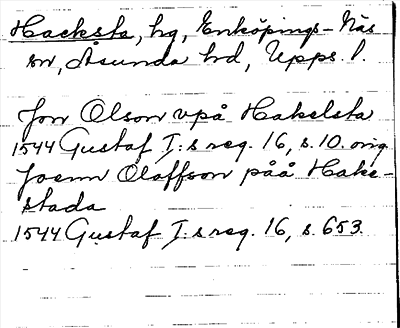 Hacksta, hg, Enköpings-Näs
sn, Åsunda hd, Upps. l.
Jon Olson vpå Hakelsta
1544 Gustaf I:s reg. 16, s. 10. orig.
Joenn Olaffson påå Hake-
stada
1544 Gustaf I:s reg. 16, s. 653.